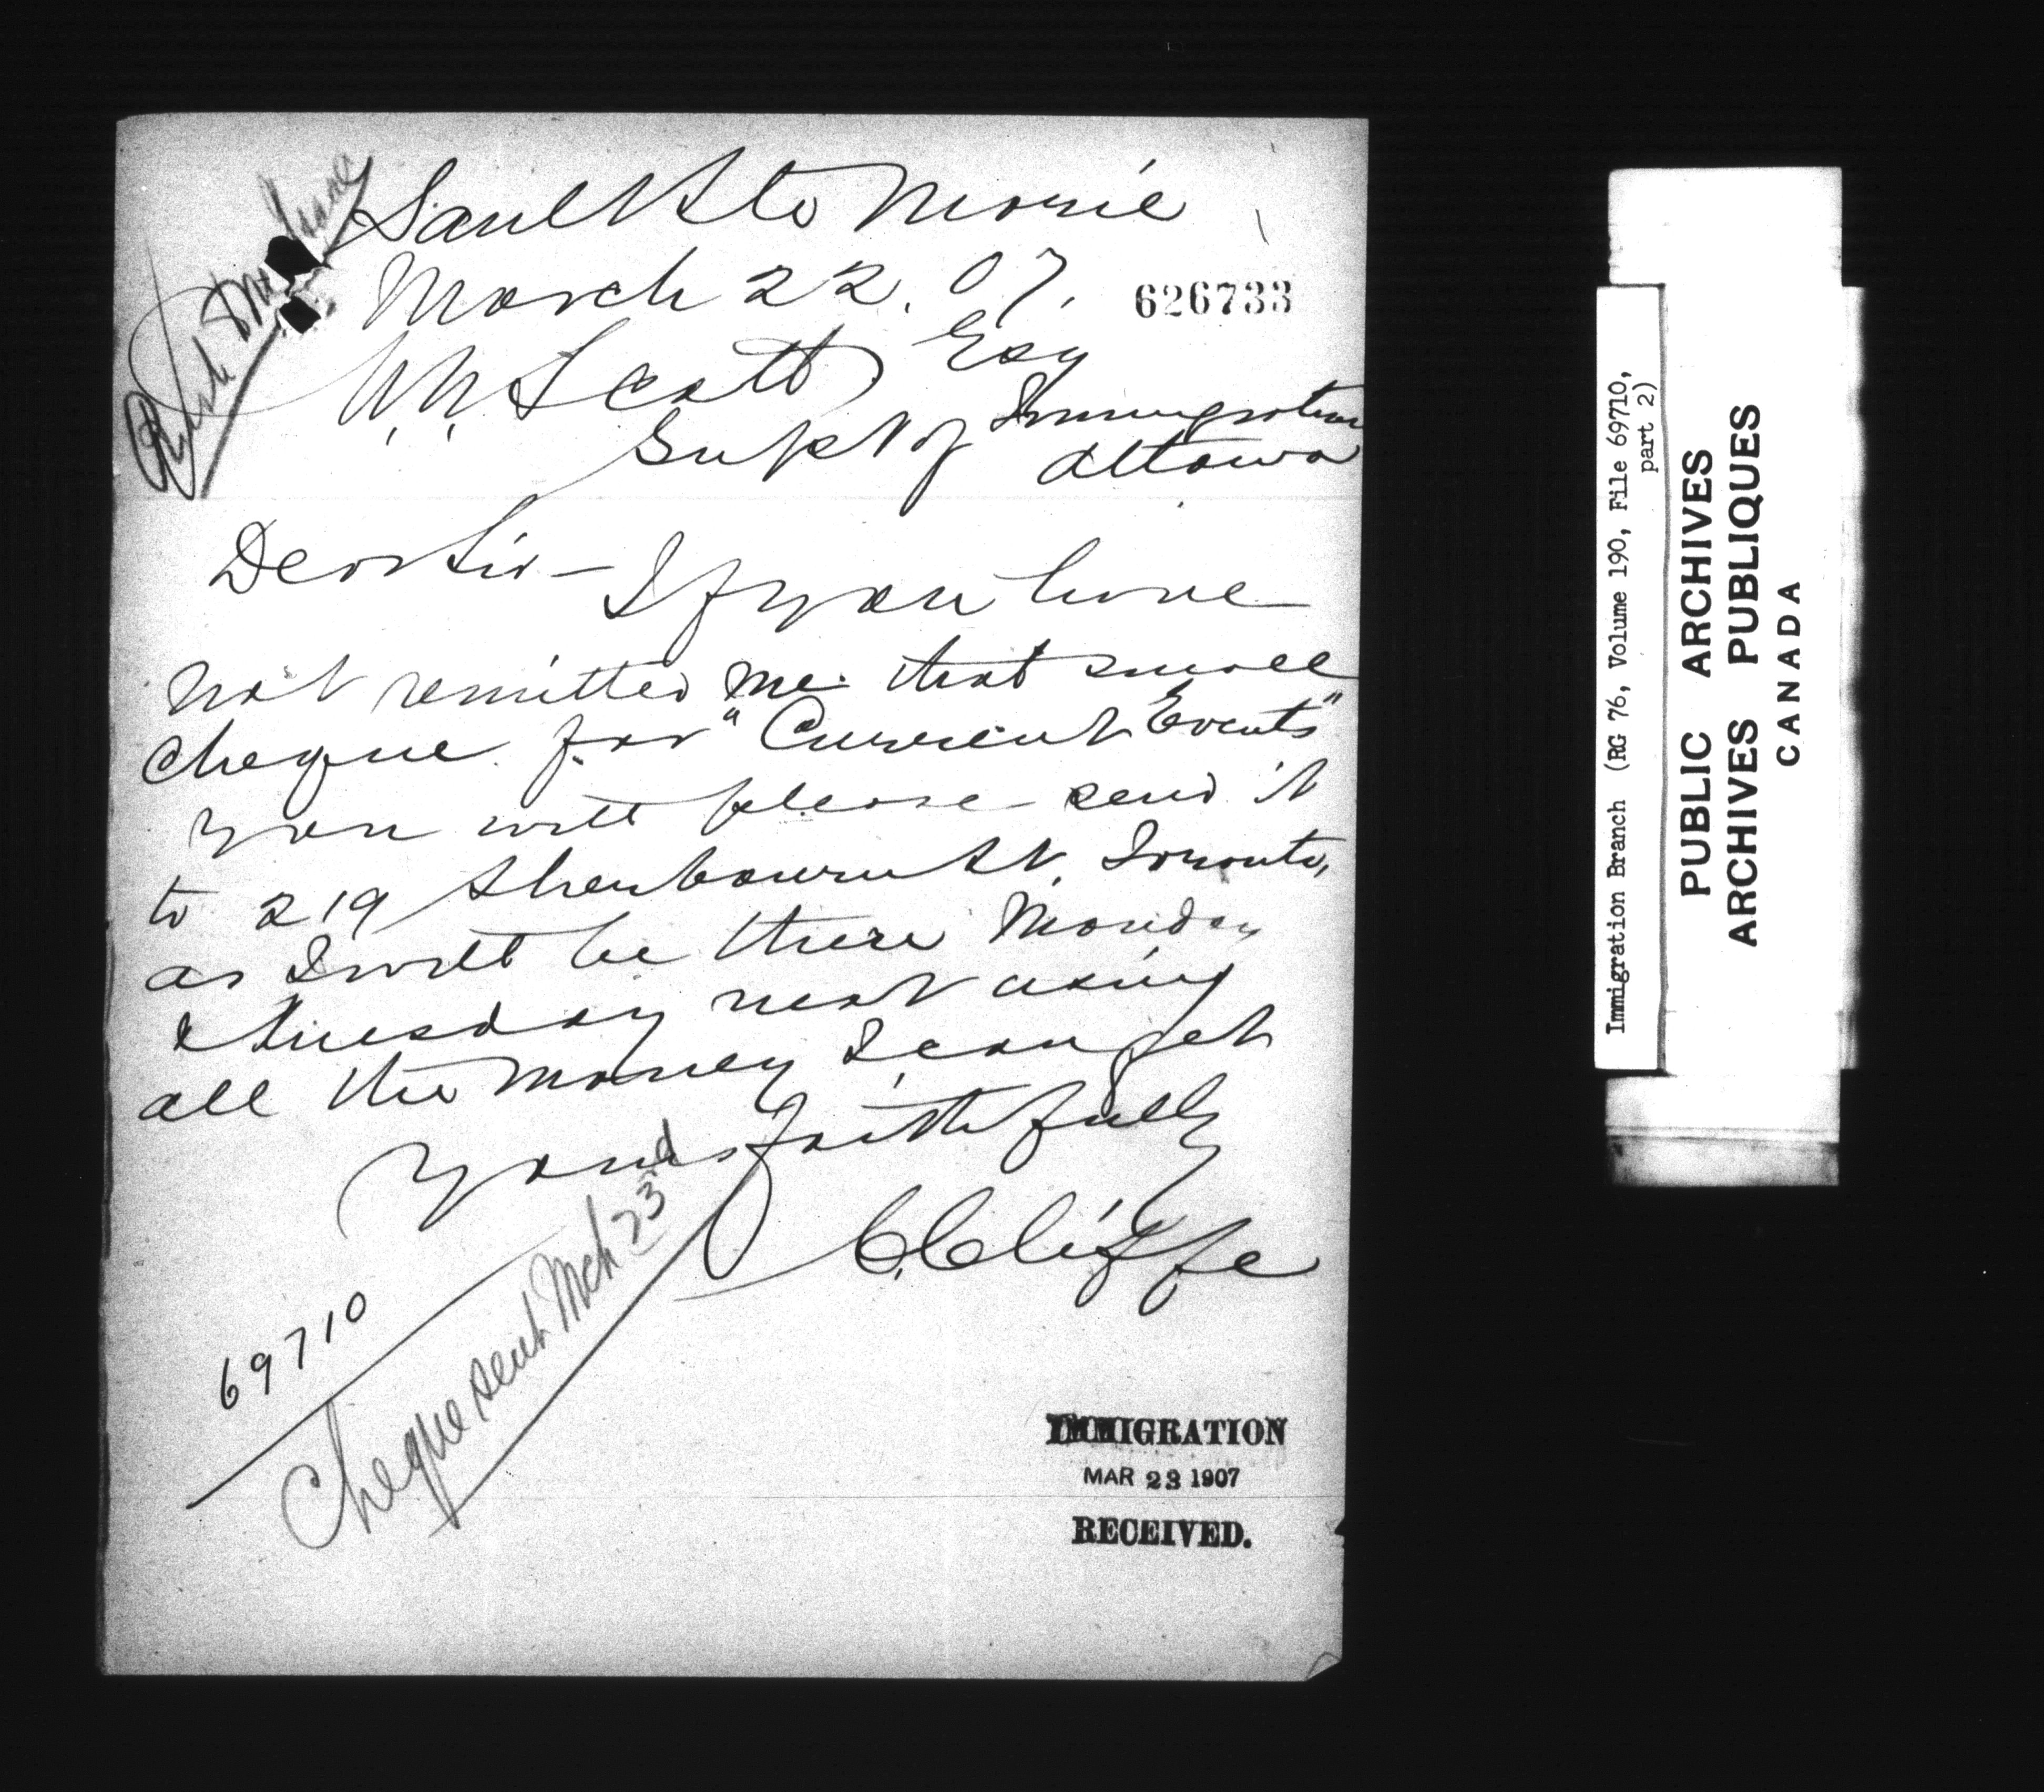 Sault Ste Marie
March 22. 07.
626733
W. W. Scott Esq
Supt of Immigration
Ottawa
Dear Sir — If you have
not remitted me that small
cheque for "Current Events"
you will please send it
to 219 Sherbourne St. Toronto,
as I will be there Monday
& Tuesday next using
all the money I can get
Yours faithfully
C. Cliffe
69710
Cheque sent Mch 23d
IMMIGRATION
MAR 23 1907
RECEIVED.
Immigration Branch (RG 76, Volume 190, File 69710,
part 2)
PUBLIC ARCHIVES
ARCHIVES PUBLIQUES
CANADA